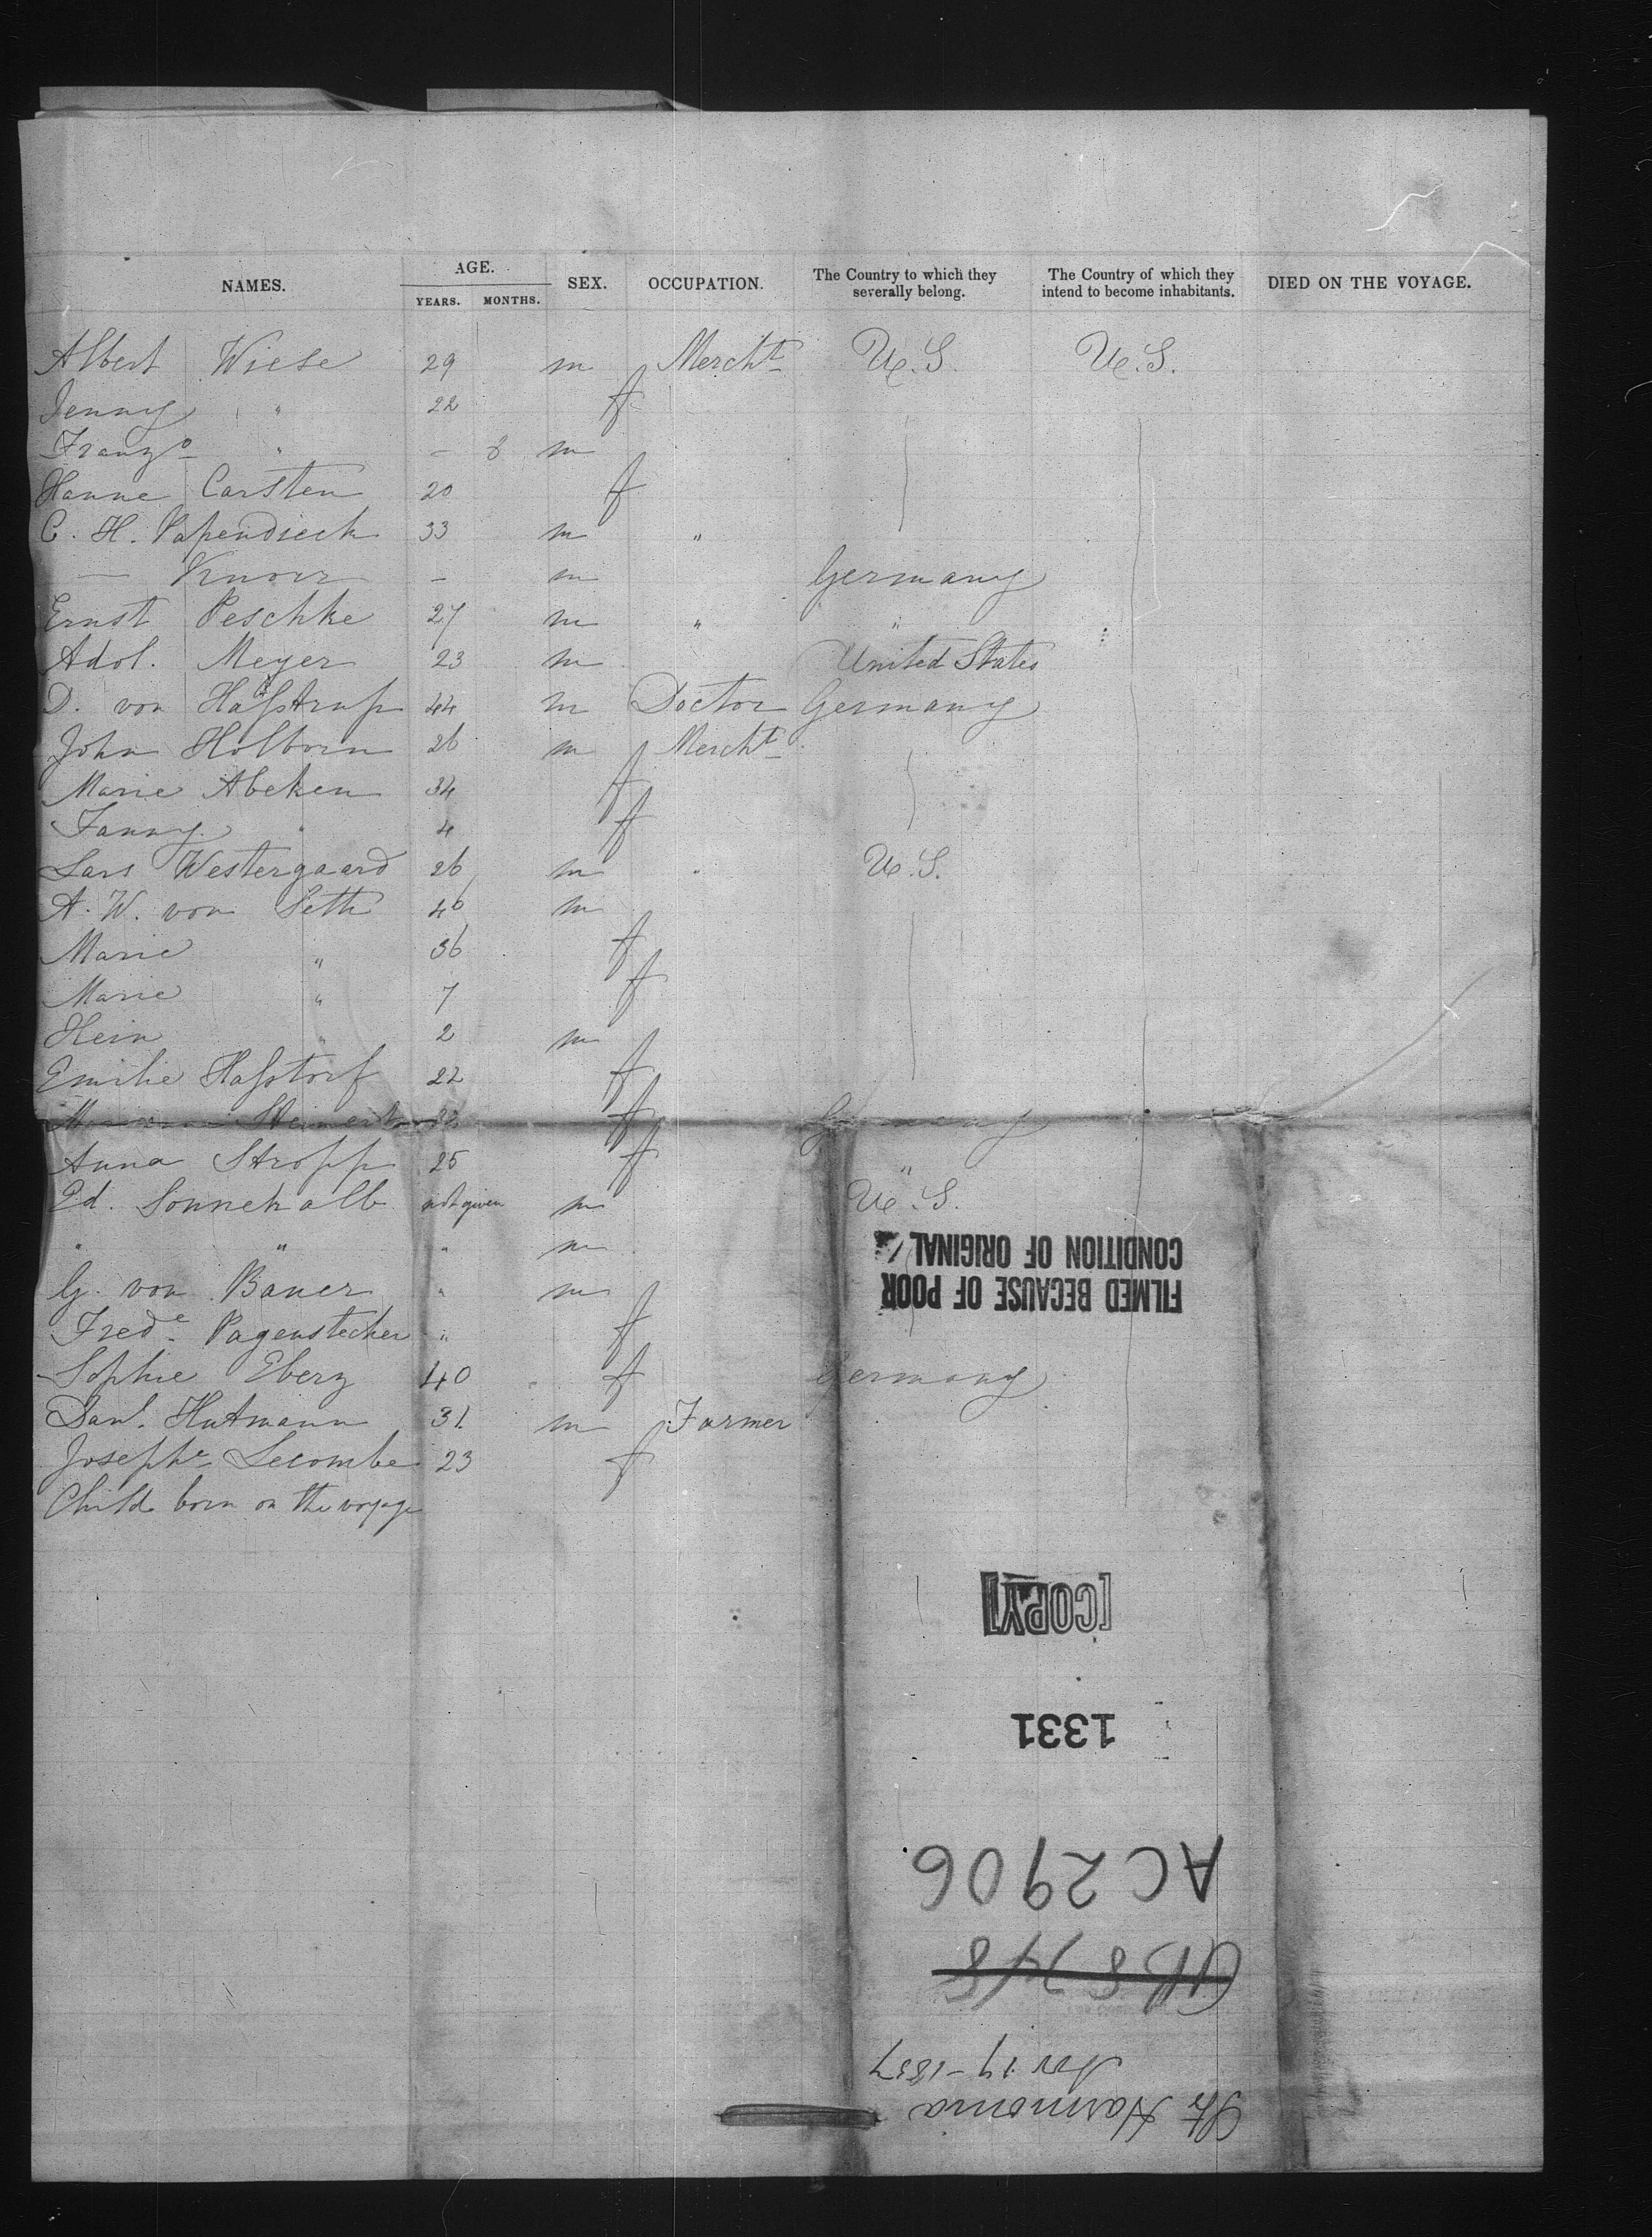 NAMES. AGE. YEARS. MONTHS. SEX. OCCUPATION. The Country to which they severally belong. The Country of which they intend to become inhabitants. DIED ON THE VOYAGE.
Albert Wiese 29 m Mercht U.S. U.S.
Jenny " 22 f
Franzo " — 8 m
Hanne Carsten 20 f
C. H. Papendieck 33 m "
— Knorr — m Germany
Ernst Peschke 27 m " "
Adol. Meyer 23 m United States
D. von Haſstrup 44 m Doctor Germany
John Holborn 26 m Mercht
Marie Abeken 34 f
Fanny " 4 f
Lars Westergaard 26 m " U.S.
A. W. von Seth 46 m
Marie " 36 f
Marie " 7 f
Hein " 2 m
Emilie Haſstorf 22 f
f Germany
Anna Stropp 25 f "
Ed. Sonnekalb not given m U.S.
" " " m
G. von Bauer " m
Frede Pagenstecher " f
Sophie Eberz 40 f Germany
Danl. Hutmann 31. m Farmer
Josephe Lecombe 23 f
Child born on the voyage
Str Harmonia
Nov 17-1857
AC2906
1331
[COPY]
FILMED BECAUSE OF POOR
CONDITION OF ORIGINAL